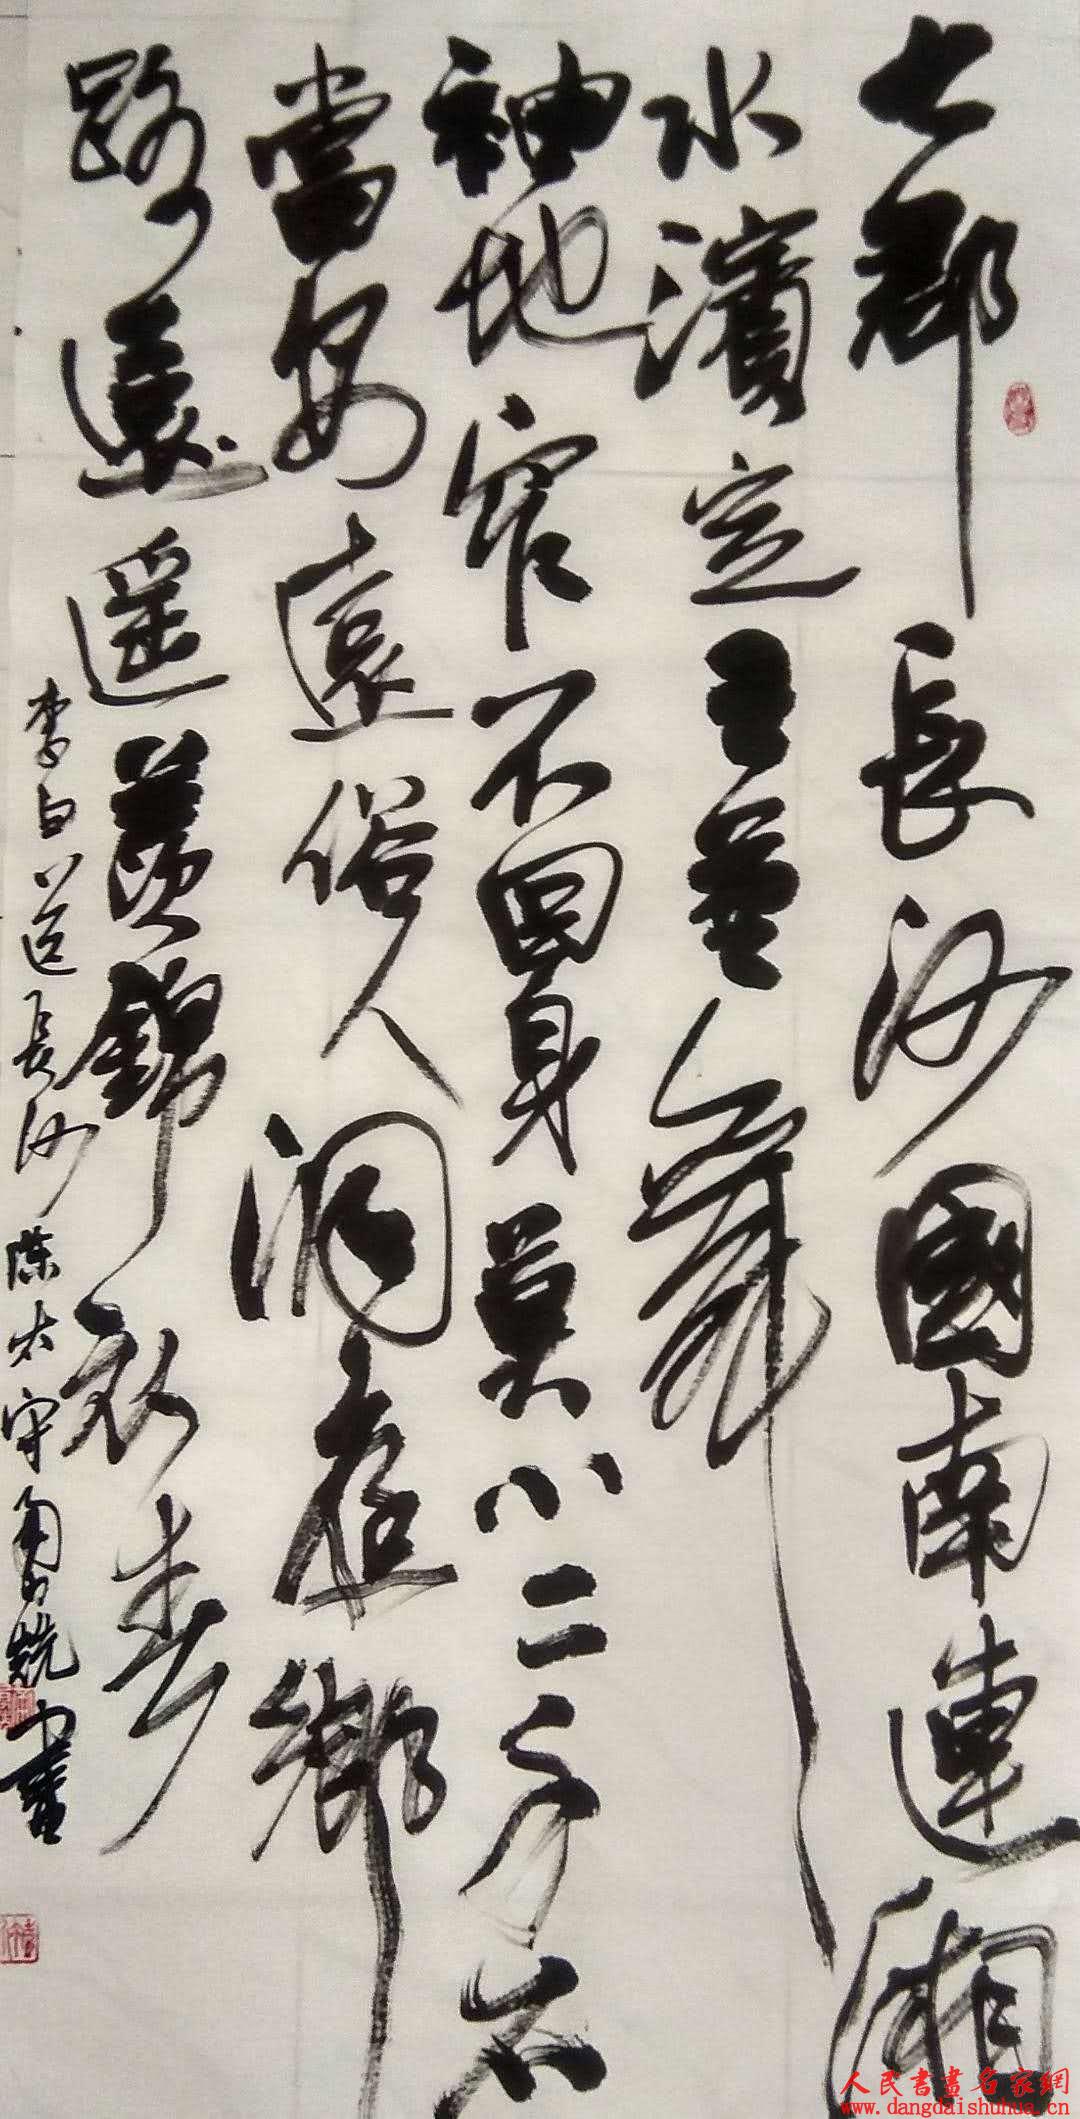 七郡長沙國南連湘
水濱定王垂舞
袖地窄不回身莫小二千石
當安遠俗人洞庭鄉
路遠遥羨錦衣春
李白送長沙陳太守 書
人民書畫名家網
www.dangdaishuhua.cn